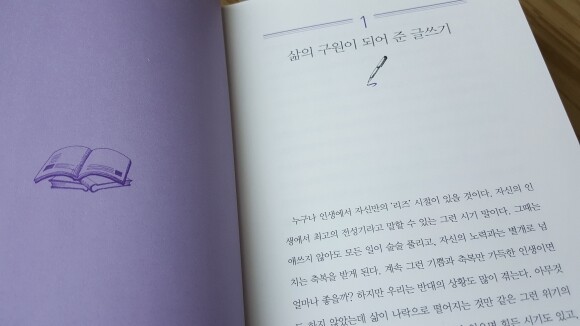 1
삶의 구원이 되어 준 글쓰기
누구나 인생에서 자신만의 '리즈' 시절이 있을 것이다. 자신의 인
생에서 최고의 전성기라고 말할 수 있는 그런 시기 말이다. 그때는
애쓰지 않아도 모든 일이 술술 풀리고, 자신의 노력과는 별개로 넘
치는 축복을 받게 된다. 계속 그런 기쁨과 축복만 가득한 인생이면
얼마나 좋을까? 하지만 우리는 반대의 상황도 많이 겪는다. 아무것
도 하지 않았는데 삶이 나락으로 떨어지는 것만 같은 그런 위기의
힘든 시기도 있고,